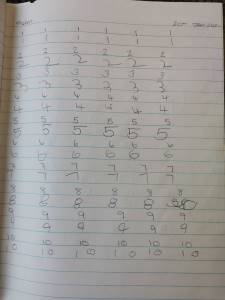 1 1 1 1 1 1
1 1 1
2 2 2 2 2 2
2 2 2 2 2 2
3 3 3 3 3 3
3 3 3 3 3 3
4 4 4 4 4 4
4 4 4 4 4 4
5 5 5 5 5 5
5 5 5 5 5 5
6 6 6 6 6 6
6 6 6 6 6 6
7 7 7 7 7 7
7 7 7 7 7 7
8 8 8 8 8 8
8 8 8 8 8
9 9 9 9 9 9
9 9 9 9 9 9
10 10 10 10 10
10 10 10 10 10 10